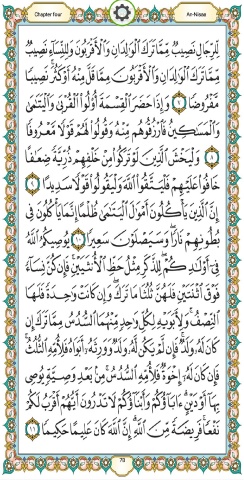 Chapter four
An-Nisaa
لِّلرِّجَالِ نَصِيبٌ مِّمَّا تَرَكَ الْوَالِدَانِ وَالْأَقْرَبُونَ وَلِلنِّسَاءِ نَصِيبٌ
مِّمَّا تَرَكَ الْوَالِدَانِ وَالْأَقْرَبُونَ مِمَّا قَلَّ مِنْهُ أَوْ كَثُرَ ۚ نَصِيبًا
مَّفْرُوضًا ٧ وَإِذَا حَضَرَ الْقِسْمَةَ أُولُو الْقُرْبَىٰ وَالْيَتَامَىٰ
وَالْمَسَاكِينُ فَارْزُقُوهُم مِّنْهُ وَقُولُوا لَهُمْ قَوْلًا مَّعْرُوفًا
٨ وَلْيَخْشَ الَّذِينَ لَوْ تَرَكُوا مِنْ خَلْفِهِمْ ذُرِّيَّةً ضِعَافًا
خَافُوا عَلَيْهِمْ فَلْيَتَّقُوا اللَّهَ وَلْيَقُولُوا قَوْلًا سَدِيدًا ٩
إِنَّ الَّذِينَ يَأْكُلُونَ أَمْوَالَ الْيَتَامَىٰ ظُلْمًا إِنَّمَا يَأْكُلُونَ فِي
بُطُونِهِمْ نَارًا ۖ وَسَيَصْلَوْنَ سَعِيرًا ١٠ يُوصِيكُمُ اللَّهُ
فِي أَوْلَادِكُمْ ۖ لِلذَّكَرِ مِثْلُ حَظِّ الْأُنثَيَيْنِ ۚ فَإِن كُنَّ نِسَاءً
فَوْقَ اثْنَتَيْنِ فَلَهُنَّ ثُلُثَا مَا تَرَكَ ۖ وَإِن كَانَتْ وَاحِدَةً فَلَهَا
النِّصْفُ ۚ وَلِأَبَوَيْهِ لِكُلِّ وَاحِدٍ مِّنْهُمَا السُّدُسُ مِمَّا تَرَكَ إِن
كَانَ لَهُ وَلَدٌ ۚ فَإِن لَّمْ يَكُن لَّهُ وَلَدٌ وَوَرِثَهُ أَبَوَاهُ فَلِأُمِّهِ الثُّلُثُ ۚ
فَإِن كَانَ لَهُ إِخْوَةٌ فَلِأُمِّهِ السُّدُسُ ۚ مِن بَعْدِ وَصِيَّةٍ يُوصِي
بِهَا أَوْ دَيْنٍ ۗ آبَاؤُكُمْ وَأَبْنَاؤُكُمْ لَا تَدْرُونَ أَيُّهُمْ أَقْرَبُ لَكُمْ
نَفْعًا ۚ فَرِيضَةً مِّنَ اللَّهِ ۗ إِنَّ اللَّهَ كَانَ عَلِيمًا حَكِيمًا ١١
78